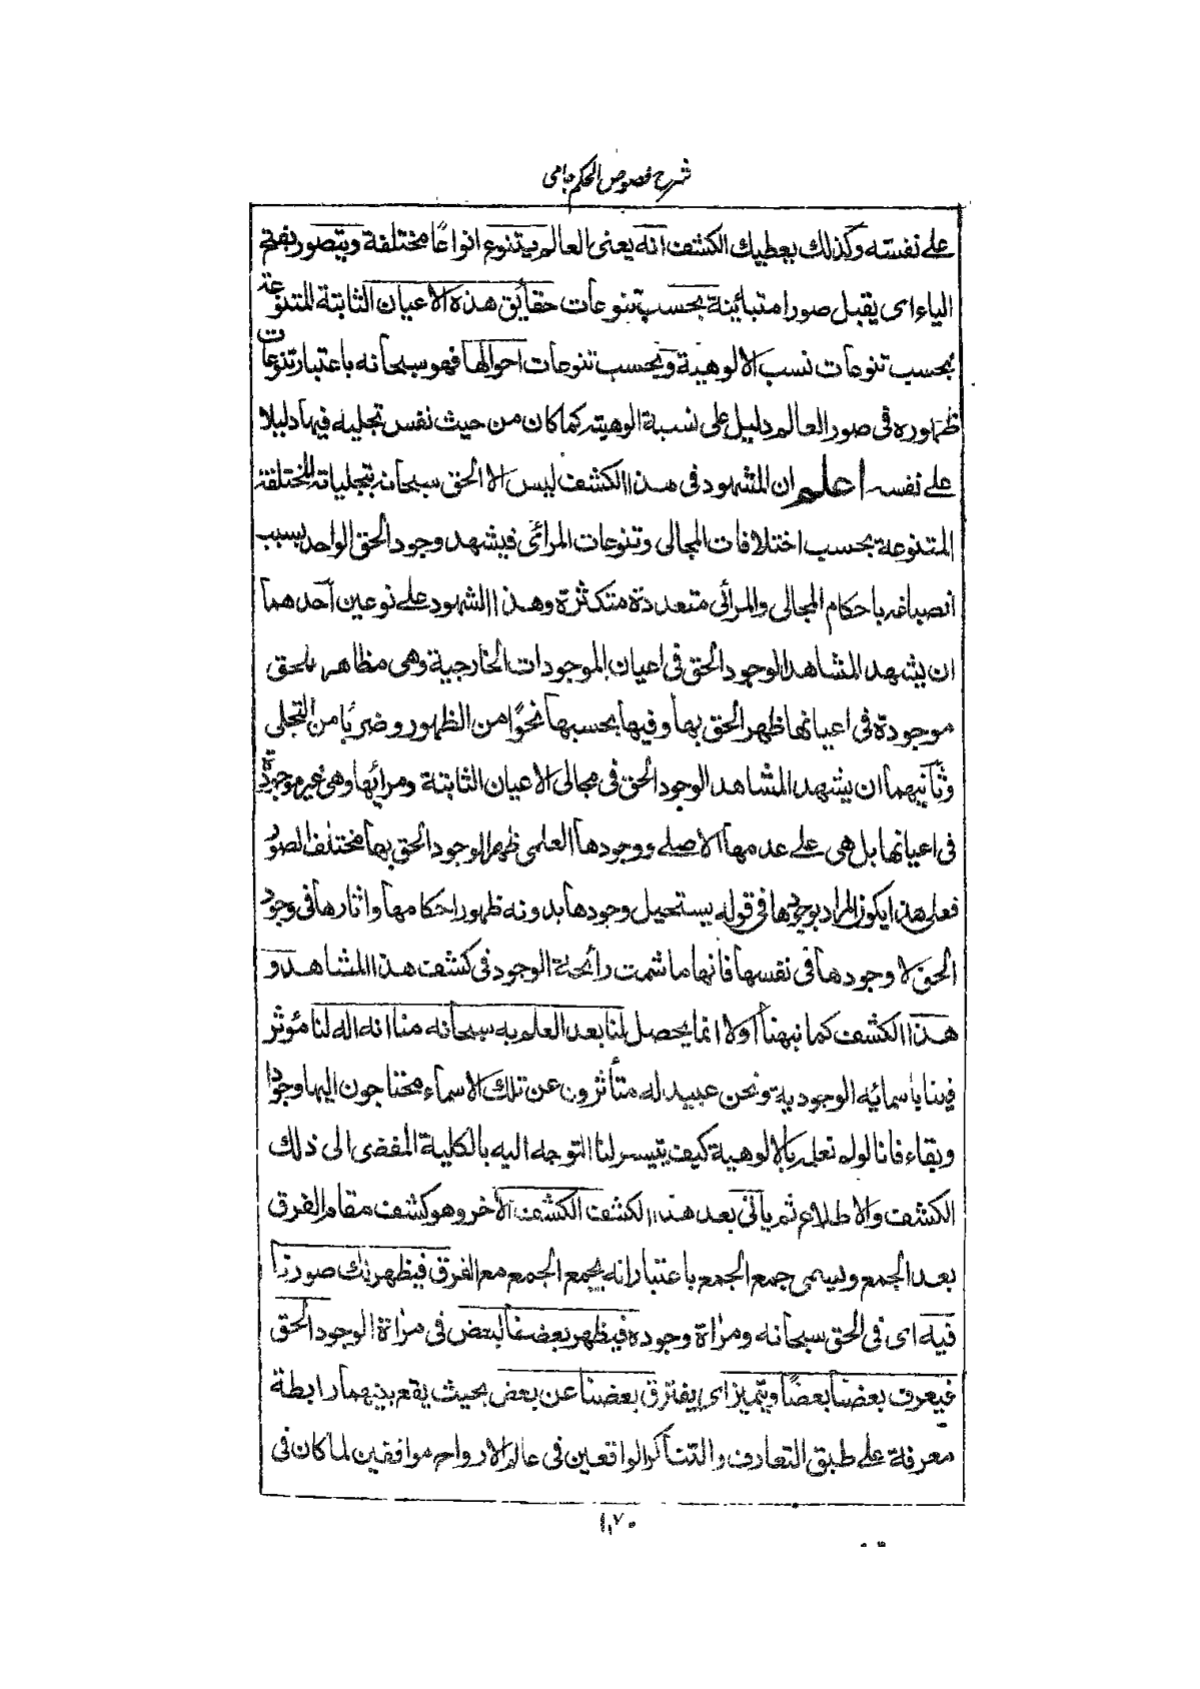 شرح فصوص الحكم جامى
على نفسه وكذلك يعطيك الكشف انه يعنى العالم يتنوع انواعًا مختلفة ويتصور بفتح
الياء اى يقبل صورا متبائنة بحسب تنوعات حقايق هذه الاعيان الثابتة المتنوعة
بحسب تنوعات نسب الالوهية وبحسب تنوعات احوالها فهو سبحانه باعتبار تنوعات
ظهوره فى صور العالم دليل على نسبة الوهيته كما كان من حيث نفس تجليه فيها دليلا
على نفسه اعلم ان المشهود فى هذا الكشف ليس الا الحق سبحانه بتجلياته المختلفة
المتنوعة بحسب اختلافات المجالى وتنوعات المرائى فيشهد وجود الحق الواحد بسبب
انصباغه باحكام المجالى والمرائى متعددة متكثرة وهذا الشهود على نوعين احدهما
ان يشهد المشاهد الوجود الحق فى اعيان الموجودات الخارجية وهى مظاهر للحق
موجودة فى اعيانها ظهر الحق بها وفيها بحسبها نحوًا من الظهور وضربًا من التجلى
وثانيهما ان يشهد المشاهد الوجود الحق فى مجالى الاعيان الثابتة ومرائها وهى غير موجودة
فى اعيانها بل هى على عدمها الاصلے ووجودها العلمى ظهر الوجود الحق بها مختلف الصور
فعلى هذا يكون المراد بوجودها فى قوله يستحيل وجودها بدونه ظهور احكامها واثارها فى وجود
الحق لا وجودها فى نفسها فانها ما شمت رائحة الوجود فى كشف هذا المشاهد و
هذا الكشف كما نبهنا اولا انما يحصل لنا بعد العلم به سبحانه منا انه اله لنا مؤثر
فينا باسمائه الوجودية ونحن عبيد له متأثرون عن تلك الاسماء محتاجون اليها وجودا
وبقاء فانا لو لم نعلم بالالوهية كيف يتيسر لنا التوجه اليه بالكلية المفضى الى ذلك
الكشف والاطلاع ثم ياتى بعد هذا الكشف الكشف الاخر وهو كشف مقام الفرق
بعد الجمع ويسمى جمع الجمع باعتبار انه يجمع الجمع مع الفرق فيظهر لك صورنا
فيه اى فى الحق سبحانه ومراة وجوده فيظهر بعضنا لبعض فى مراة الوجود الحق
فيعرف بعضنا بعضًا ويتميز اى يفترق بعضنا عن بعض بحيث يقع بينهما رابطة
معرفة على طبق التعارف والتناكر الواقعين فى عالم الارواح موافقين لما كان فى
١٧٠